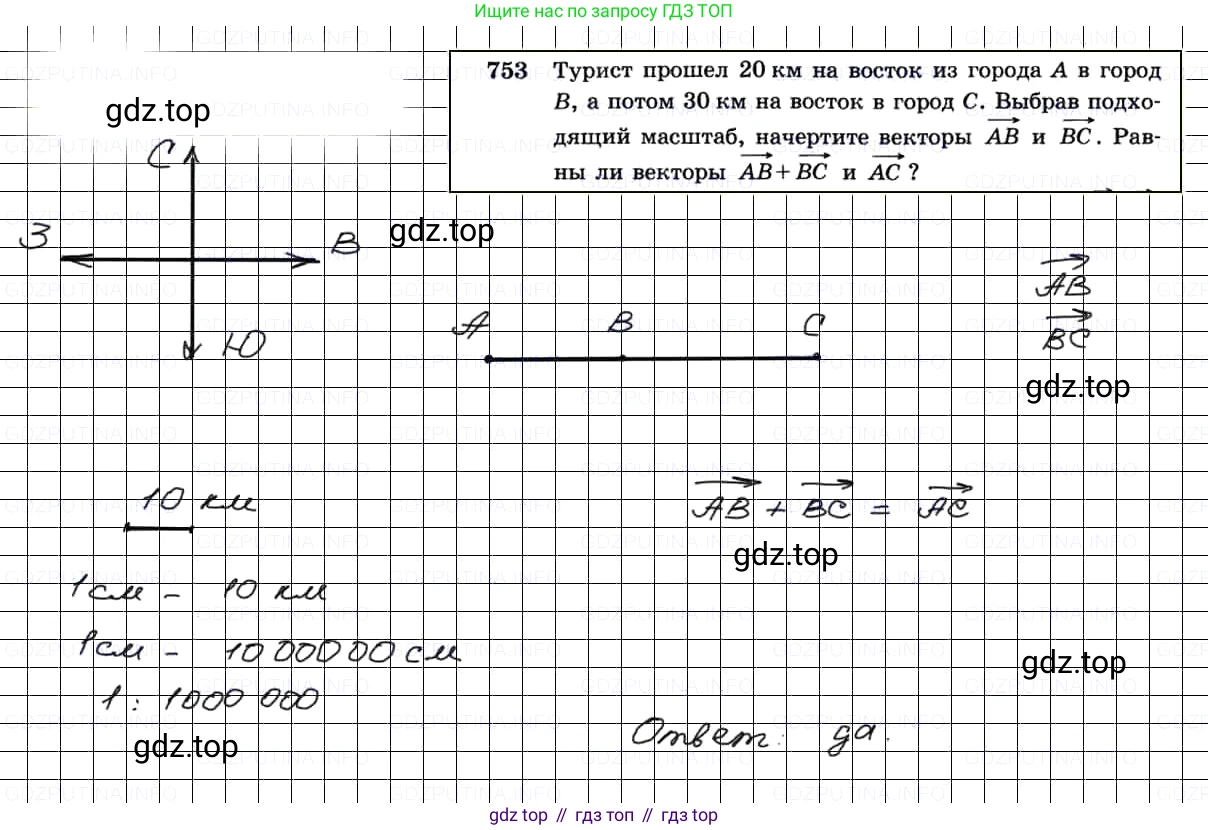 Ищите нас по запросу ГДЗ ТОП
753 Турист прошел 20 км на восток из города A в город
B, а потом 30 км на восток в город C. Выбрав подхо-
дящий масштаб, начертите векторы AB и BC. Рав-
ны ли векторы AB + BC и AC ?
gdz.top
С
З
В
Ю
gdz.top
A B C
AB
BC
gdz.top
10 км
AB + BC = AC
gdz.top
1 см - 10 км
1 см - 1000000 см
1 : 1000 000
gdz.top
gdz.top
Ответ: да.
gdz top // гдз топ // гдз top